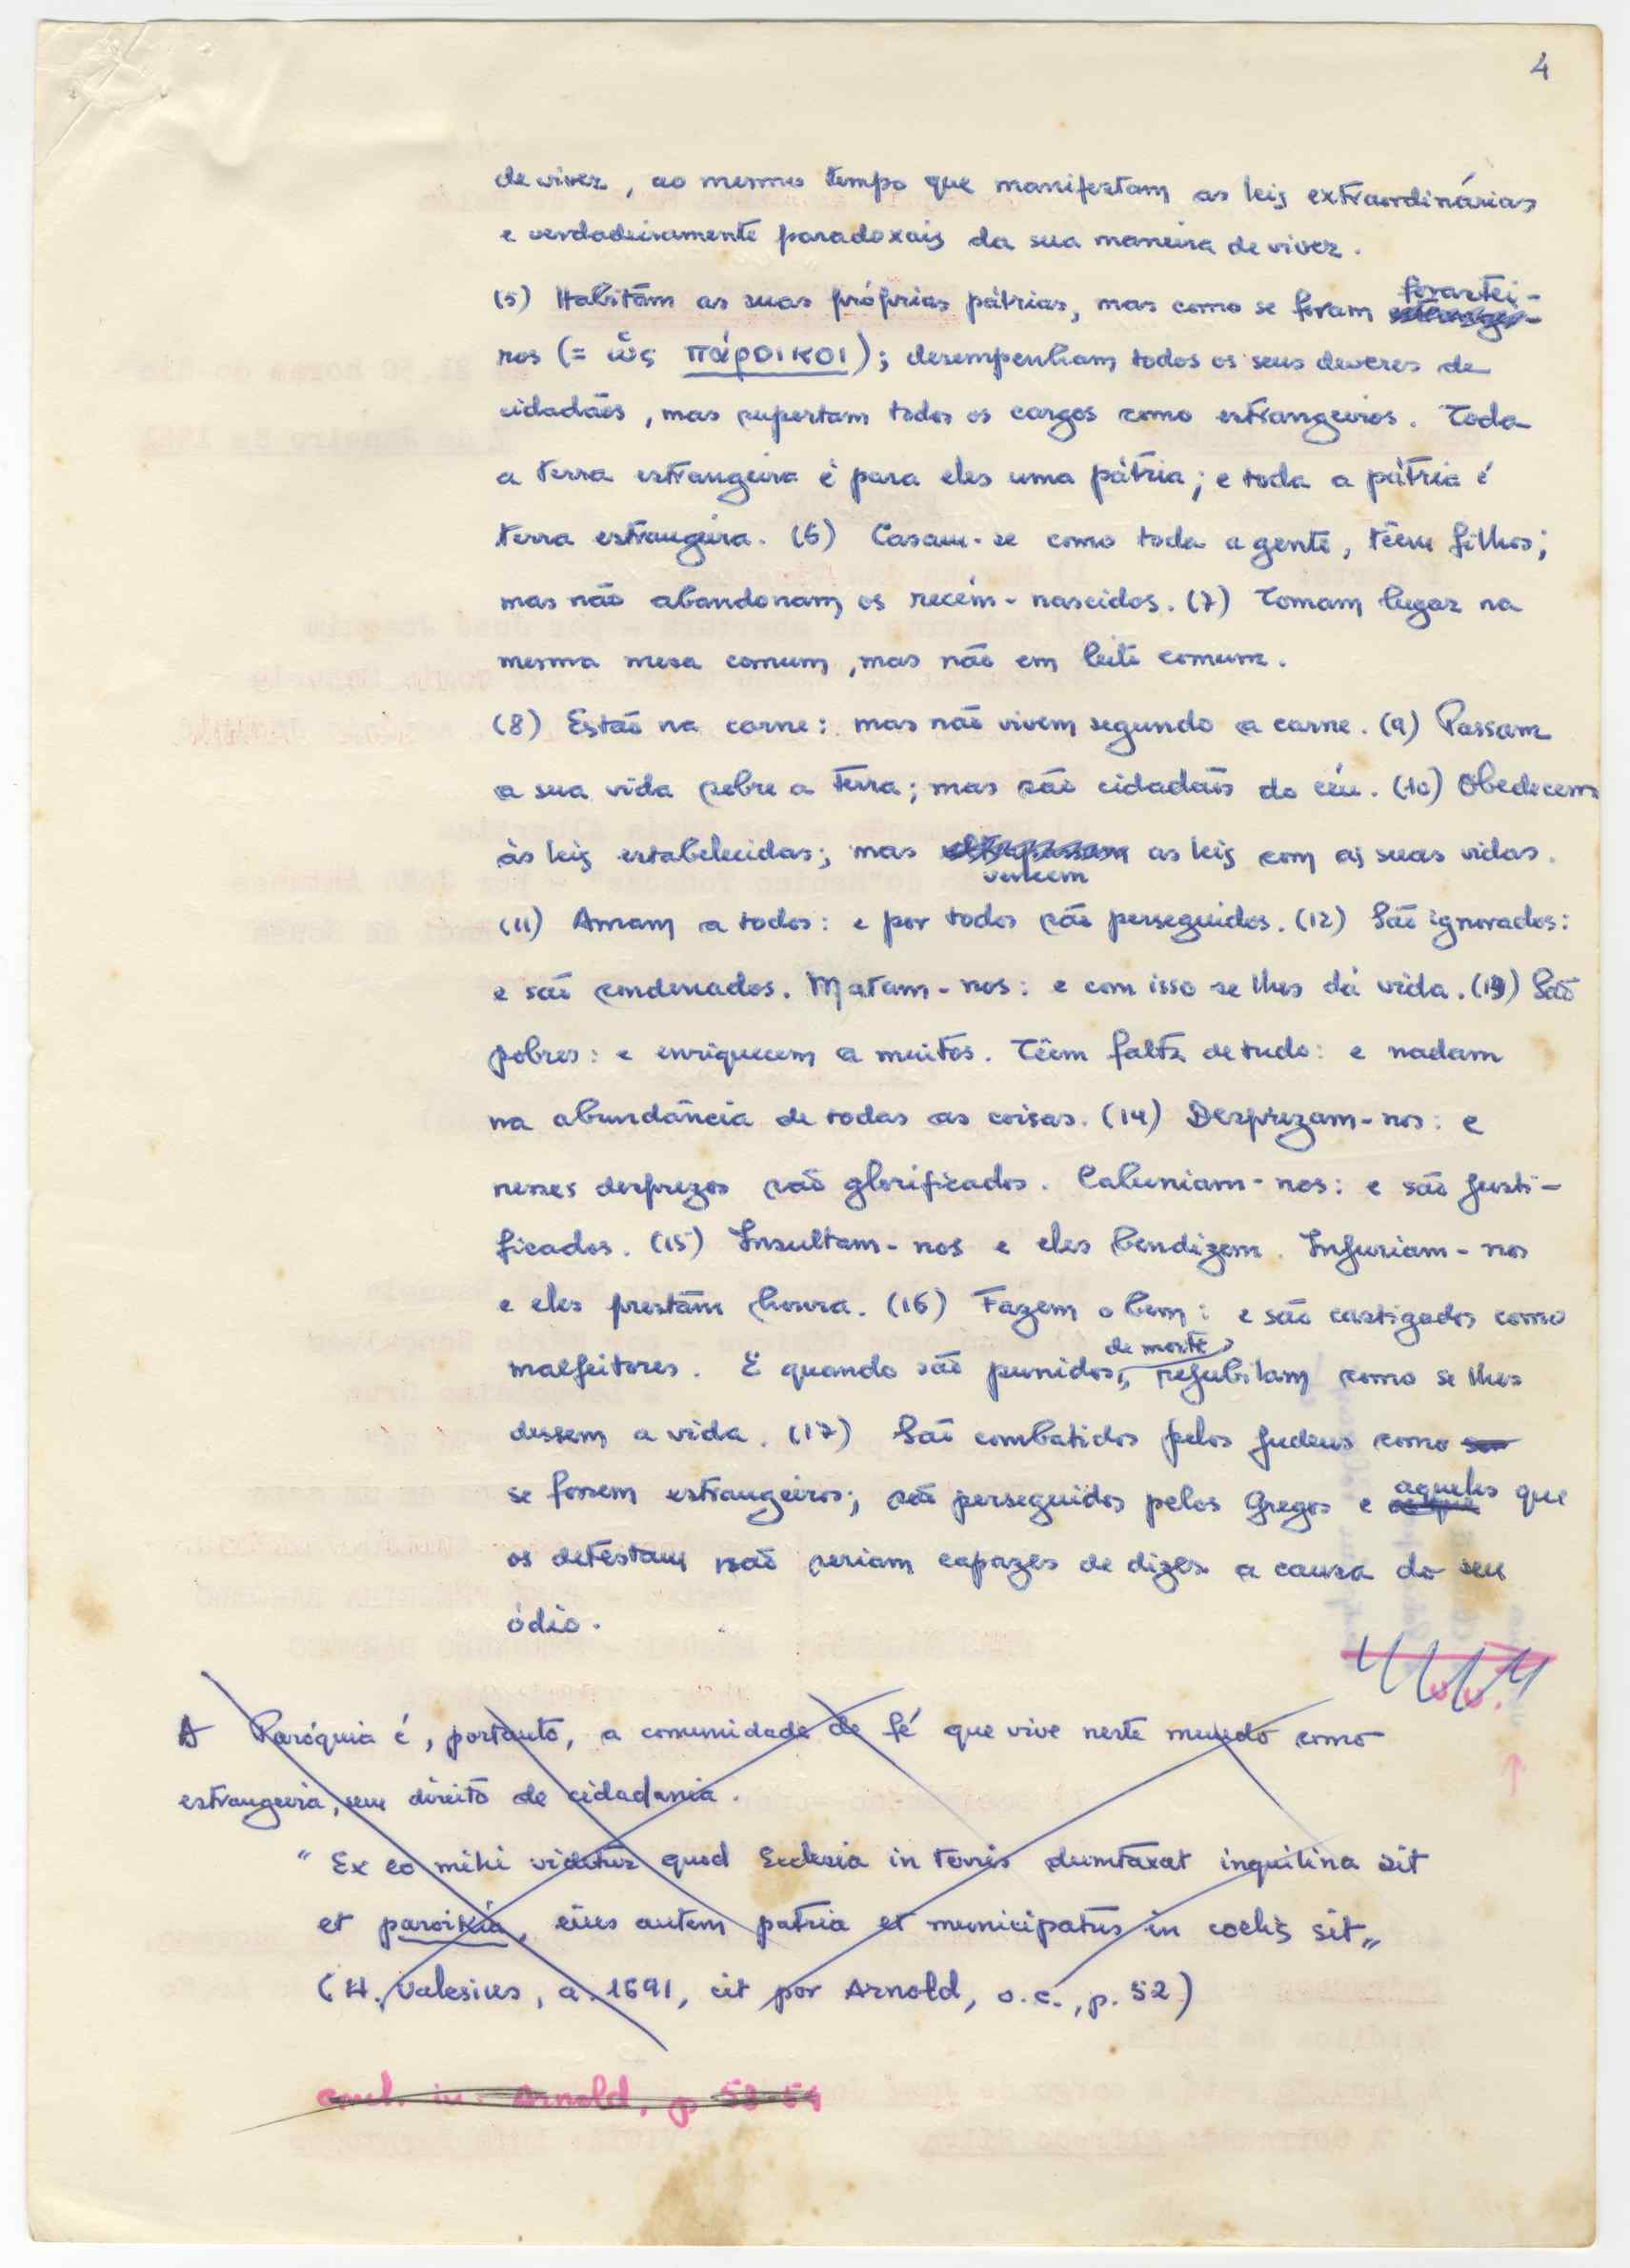 4
de viver, ao mesmo tempo que manifestam as leis extraordinárias
e verdadeiramente paradoxais da sua maneira de viver.
(5) Habitam as suas próprias pátrias, mas como se foram forastei-
ros (= ὡς πάροικοι); desempenham todos os seus deveres de
cidadãos, mas suportam todos os cargos como estrangeiros. Toda
a terra estrangeira é para eles uma pátria; e toda a pátria é
terra estrangeira. (6) Casam-se como toda a gente, têem filhos;
mas não abandonam os recém-nascidos. (7) Tomam lugar na
mesma mesa comum, mas não em leito comum.
(8) Estão na carne: mas não vivem segundo a carne. (9) Passam
a sua vida sobre a terra; mas são cidadãos do céu. (10) Obedecem
às leis estabelecidas; mas ultrapassam as leis com as suas vidas.
vencem
(11) Amam a todos: e por todos são perseguidos. (12) São ignorados:
e são condenados. Matam-nos: e com isso se lhes dá vida. (13) São
pobres: e enriquecem a muitos. Têem falta de tudo: e nadam
na abundância de todas as coisas. (14) Desprezam-nos: e
nesses desprezos são glorificados. Caluniam-nos: e são justi-
ficados. (15) Insultam-nos e eles bendizem. Injuriam-nos
e eles prestam honra. (16) Fazem o bem: e são castigados como
de morte,
malfeitores. E quando são punidos, rejubilam como se lhes
dessem a vida. (17) São combatidos pelos judeus como
se fossem estrangeiros; são perseguidos pelos Gregos e aqueles que
os detestam não seriam capazes de dizer a causa do seu
ódio.
A Paróquia é, portanto, a comunidade de fé que vive neste mundo como
estrangeira, sem direito de cidadania.
"Ex eo mihi videtur quod Ecclesia in terris dumtaxat inquilina sit
et paroikia, eius autem patria et municipatus in coelis sit"
(H. Valesius, a. 1691, cit por Arnold, o.c., p. 52)
conl. in. Arnold, p 53-54